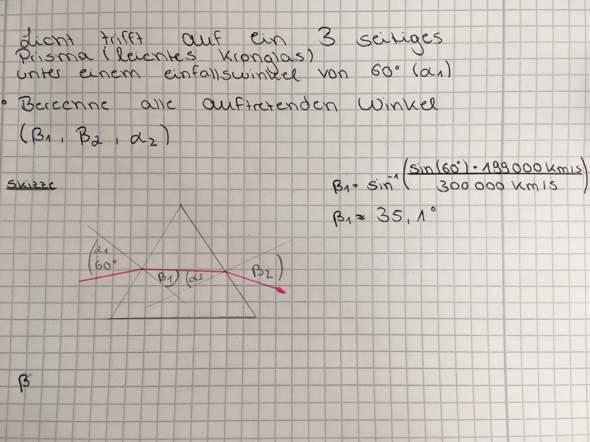 Licht trifft auf ein 3 seitiges
Prisma (leichtes Kronglas)
unter einem einfallswinkel von 60° (α1)
• Berecenne alle auftretenden Winkel
(β1, β2, α2)
Skizze
β1 = sin⁻¹ (sin(60°) · 199 000 km/s / 300 000 km/s)
β1 = 35,1°
α1
60°
β1
α2
β2
β